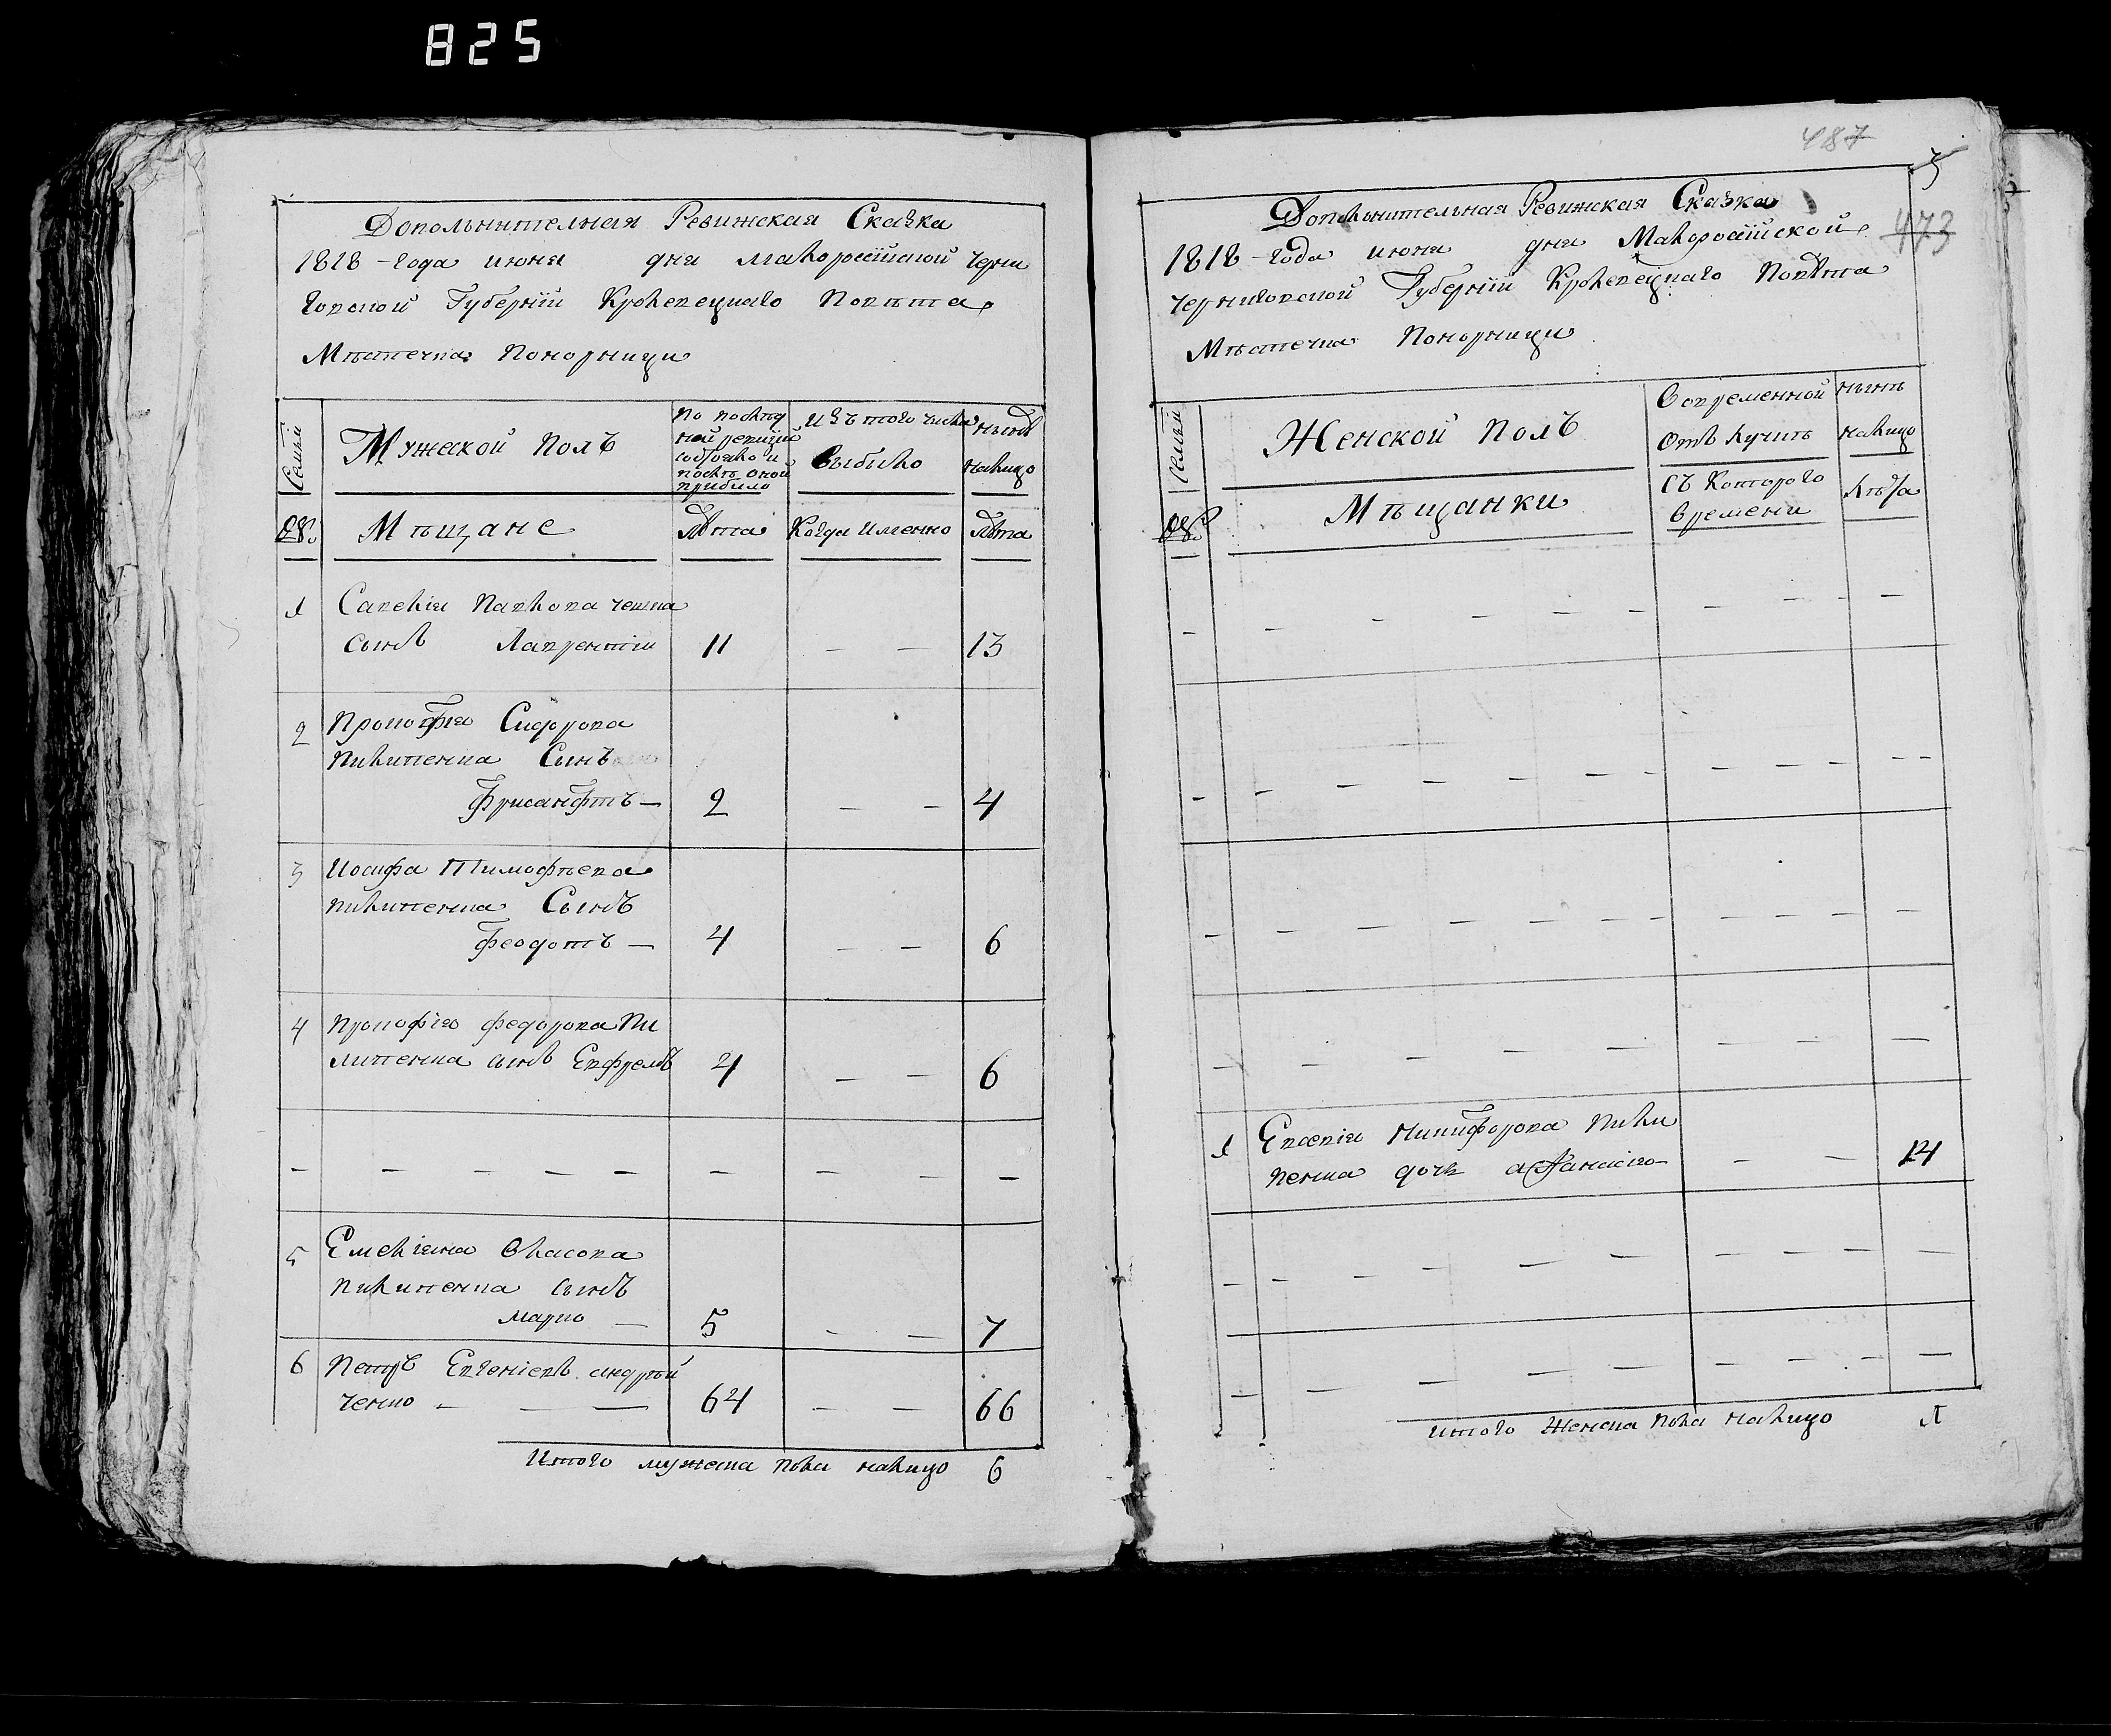 825
Допольнительная Ревижская Сказка
1818 – года июня дня малоросiйской Черни
говской Губернiи Кролевецкаго Повѣта
Мѣстечка Понорници
Семьи
Мужеской Полъ
По послѣд
ней ревизiи
состояло и
послѣ оной
прибыло
Изъ того числа
выбыло
нынѣ
налицо
№.
Мѣщане
Лѣта
Когда именно
Лѣта
1 Савелiя Павлова
сынъ Лаврентiй 11 – – 13
2 Прокофiя Сидорова
Пилипенка Сынъ
Фрисанфтъ – 2 – – 4
3 Иосифа Тимофѣева
Пилипенка Сынъ
Феодотъ – 4 – – 6
4 Прокофiя Федорова Пи
липенка сынъ Евфремъ 4 – – 6
– – – – – – – – –
5 Емелiяна Власова
Пилипенка сынъ
Марко – 5 – – 7
6 Петръ Евгенiевъ андрѣй
ченко – – – 64 – – 66
Итого мужеска пола налицо 6
487
3
473
Допольнительная Ревижская Сказка
1818 – года июня дня Малоросiйской
Черниговской Губернiи Кролевецкаго Повѣта
Мѣстечка Понорници
Семьи
Женской Полъ
Во временной
отлучкѣ
нынѣ
налицо
№.
Мѣщанки
Съ Которого
времени
Лѣта
1 Евсевiя Никифорова Пили
пенка дочь – – 14
Итого Женска пола налицо 1